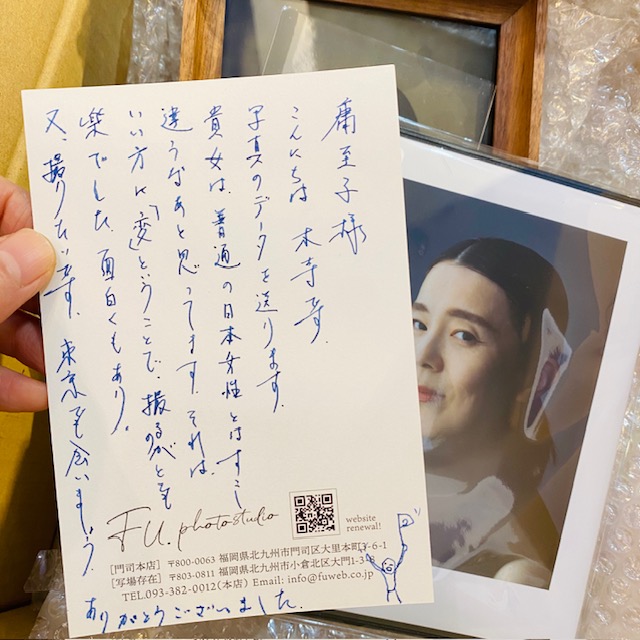 庸至子様
こんにちは 木寺です.
写真のデータを送ります.
貴女は、普通の日本女性とはすこし
違うなあと思ってます. それは.
いい方に「変」ということで. 撮るのがとても
楽でした. 面白くもあり.
又、撮りたいです. 東京でも会いましょう
ありがとうございました.
FU. photostudio
website
renewal!
［門司本店］〒800-0063 福岡県北九州市門司区大里本町3-6-1
［写場存在］〒803-0811 福岡県北九州市小倉北区大門1-3
TEL.093-382-0012(本店) Email: info@fuweb.co.jp